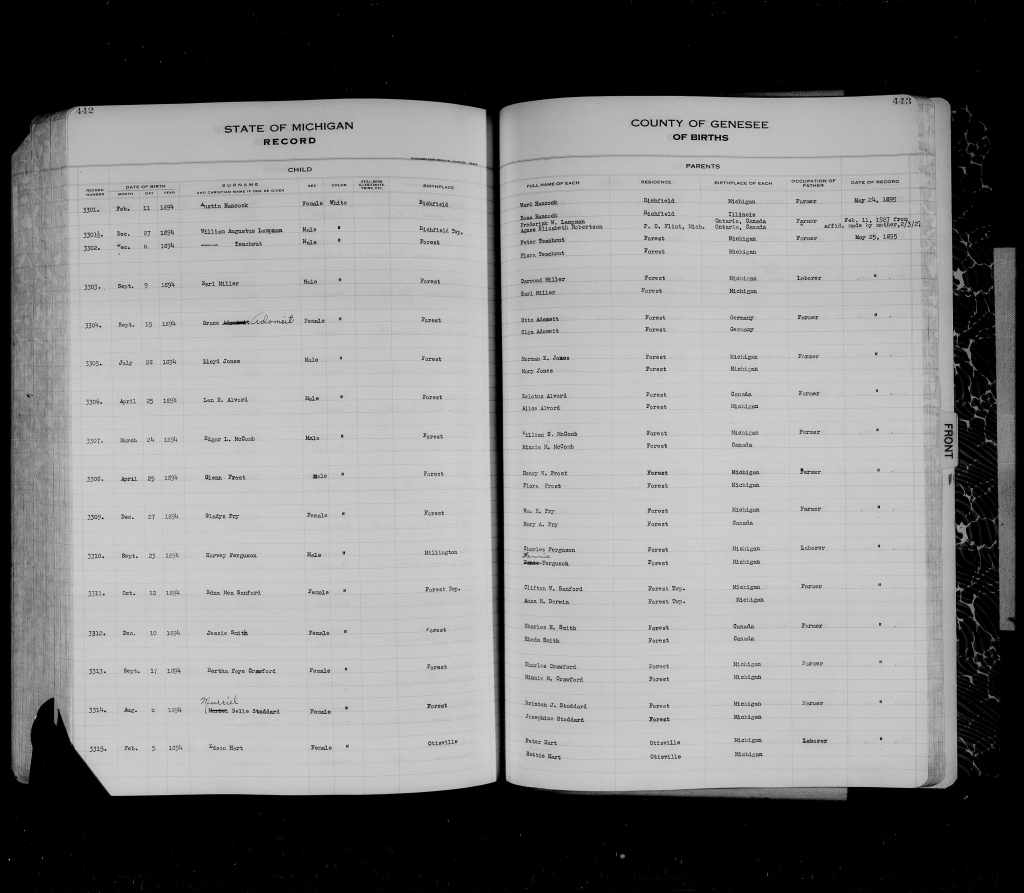 442
STATE OF MICHIGAN
RECORD
CHILD
RECORD NUMBER DATE OF BIRTH MONTH DAY YEAR SURNAME AND CHRISTIAN NAME IF ONE BE GIVEN SEX COLOR BIRTHPLACE
3301. Feb. 11 1894 Austin Hancock Female White Richfield
3301½. Dec. 27 1894 William Augustus Lampman Male " Richfield Twp.
3302. Dec. 1894 Teachout Male " Forest
3303. Sept. 9 1894 Earl Miller Male " Forest
3304. Sept. 15 1894 Adomeit Female " Forest
3305. July 28 1894 Lloyd Jones Male " Forest
3306. April 25 1894 Len Alvord Male " Forest
3307. March 24 1894 Edgar L. McComb Male " Forest
3308. April 25 1894 Glenn Frost Male " Forest
3309. Dec. 27 1894 Gladys Fry Female " Forest
3310. Sept. 23 1894 Harvey Ferguson Male " Millington
3311. Oct. 12 1894 Edna Mae Sanford Female " Forest Twp.
3312. Dec. 10 1894 Jessie Smith Female " Forest
3313. Sept. 17 1894 Bertha Faye Crawford Female " Forest
Murriel
3314. Aug. 1894 Belle Stoddard Female " Forest
3315. Feb. 5 1894 Hart Female " Otisville
443
COUNTY OF GENESEE
OF BIRTHS
PARENTS
FULL NAME OF EACH RESIDENCE BIRTHPLACE OF EACH OCCUPATION OF FATHER DATE OF RECORD
Ward Hancock Richfield Michigan Farmer May 24, 1895
Rosa Hancock Richfield Illinois
Frederick W. Lampman Ontario, Canada Farmer Feb. 11, 1927 from
Agnes Elizabeth Robertson P. O. Flint, Mich. Ontario, Canada affid. made by mother, 2/3/27
Peter Teachout Forest Michigan Farmer May 25, 1895
Flora Teachout Forest Michigan
Miller Forest Michigan Laborer "
Miller Forest Michigan
Otto Adomeit Forest Germany Farmer "
Adomeit Forest Germany
Herman E. Jones Forest Michigan Farmer "
Mary Jones Forest Michigan
Alvord Forest Canada Farmer "
Alice Alvord Forest Michigan
William McComb Forest Michigan Farmer "
Minnie M. McComb Forest Canada
Henry W. Frost Forest Michigan Farmer "
Flora Frost Forest Michigan
Wm. Fry Forest Michigan Farmer "
Mary A. Fry Forest Canada
Charles Ferguson Forest Michigan Laborer "
Ferguson Forest Michigan
Clifton W. Sanford Forest Twp. Michigan Farmer "
Anna Forest Twp. Michigan
Charles Smith Forest Canada Farmer "
Rhoda Smith Forest Canada
Charles Crawford Forest Michigan Farmer "
Minnie M. Crawford Forest Michigan
J. Stoddard Forest Michigan Farmer "
Josephine Stoddard Forest Michigan
Peter Hart Otisville Michigan Laborer "
Hattie Hart Otisville Michigan
FRONT